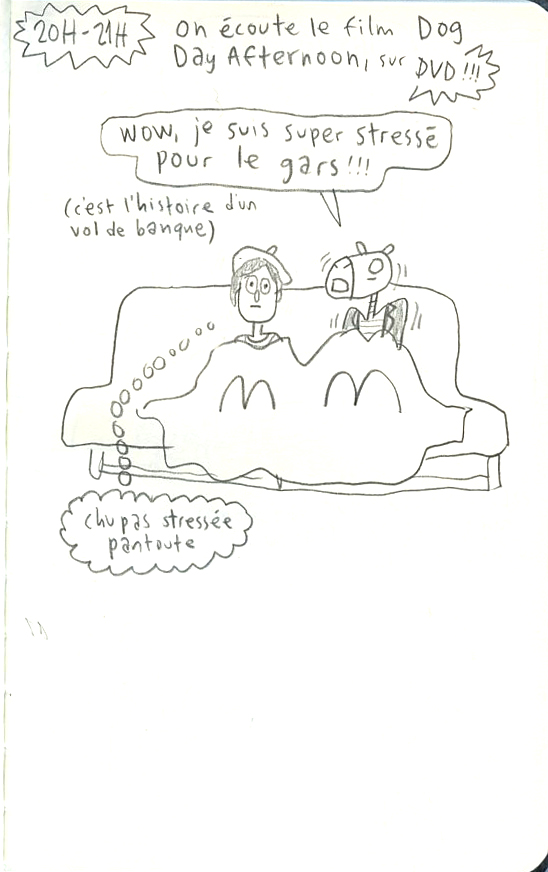 20H-21H
On écoute le film Dog
Day Afternoon, sur DVD!!!
WOW, je suis super stressé
pour le gars!!!
(c'est l'histoire d'un
vol de banque)
chu pas stressée
pantoute